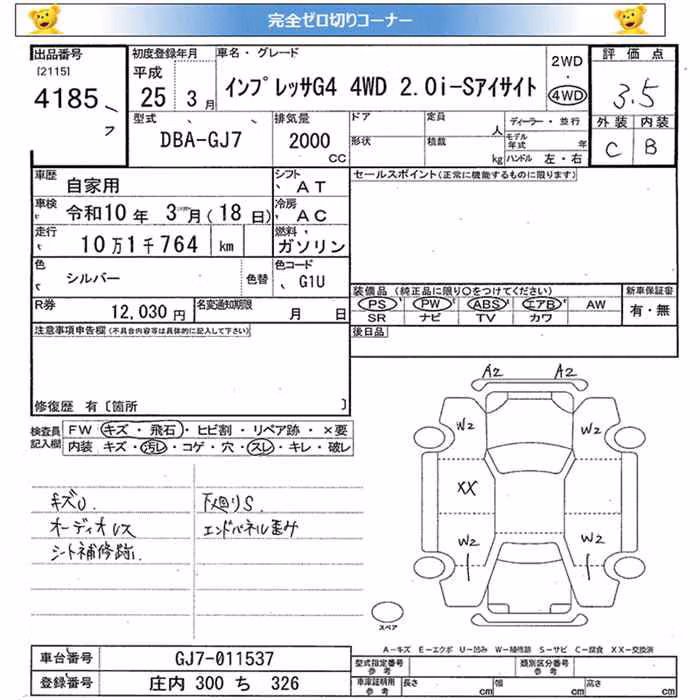 完全ゼロ切りコーナー
出品番号 初度登録年月 車名・グレード 2WD 評価点
[2115] 平成 ・
4185 25 3月 インプレッサG4 4WD 2.0i-Sアイサイト 4WD 3.5
型式 排気量 ドア 定員 ディーラー・並行 外装 内装
DBA-GJ7 2000 CC 形状 人 積載 kg モデル年式 年 ハンドル 左・右 C B
車歴 自家用 シフト AT セールスポイント(正常に機能するものに限ります)
車検 令和10年 3月(18日) 冷房 AC
走行 10万1千764 km 燃料 ガソリン
色 シルバー 色替 色コード G1U
装備品(純正品に限り○をつけてください) 新車保証書
R券 12,030円 名変通知期限 月 日 PS PW ABS エアB AW 有・無
SR ナビ TV カワ
注意事項申告欄(不具合内容等は具体的に記入して下さい) 後日品
修復歴 有〔箇所 〕
検査員記入欄 FW キズ・飛石・ヒビ割・リペア跡・×要
内装 キズ・汚レ・コゲ・穴・スレ・キレ・破レ
A2 A2
W2 W2
XX
W2 W2
キズU. 下廻りS.
オーディオレス エンドパネル歪み
シート補修跡.
スペア
A-キズ E-エクボ U-凹み W-補修跡 S-サビ C-腐食 XX-交換済
車台番号 GJ7-011537 型式指定番号 参考 類別区分番号 参考
登録番号 庄内 300 ち 326 車庫証明用 参考 長さ cm 幅 cm 高さ cm